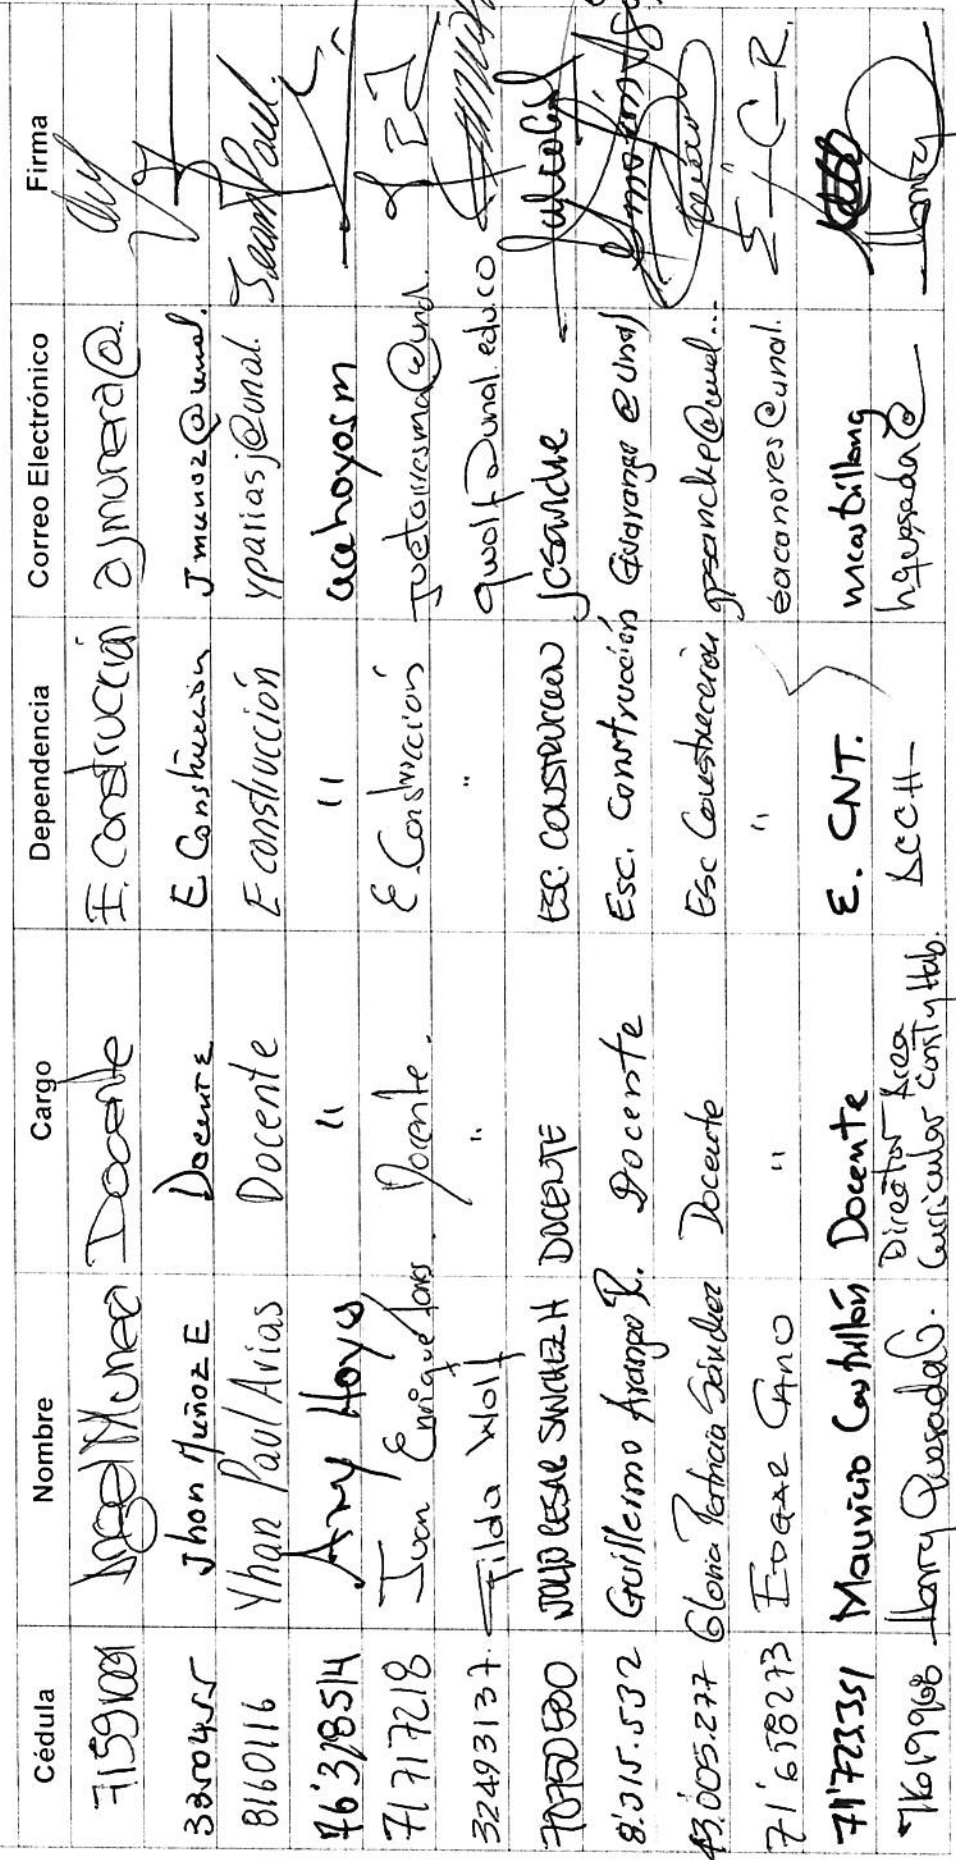 Cédula Nombre Cargo Dependencia Correo Electrónico Firma
71591001 Angel Munera Docente E. Construcción ajmunera@.
33504955 Jhon Muñoz E Docente E. Construcción Jmunoz2@unal.
8160116 Yhan Paul Arias Docente E construcción ypariasj@unal. JeamPaul.
76'328514 Ary Hoyos " " aahoyosm
71717218 Juan Enrique Torres Docente. E Construcción juetorresma@unal.
32493137. Gilda Wolf " " gwolf@unal.edu.co
70750590 JULIO CESAR SANCHEZ H DOCENTE ESC. CONSTRUCCION jcsanche
8'315.532 Guillermo Arango R. Docente Esc. Construcción Gvarango@unal
43.005.277 Gloria Patricia Sánchez Docente Esc Construcción gpsanchp@unal...
71'658273 EDGAR CANO " " eacanores@unal. E-C-R.
71'723351 Mauricio Castrillón Docente E. CNT. mcastrillong
71619968 Harry Quesada G. Director Area Curricular Const y Hab. ACCH hquesada@ Harry